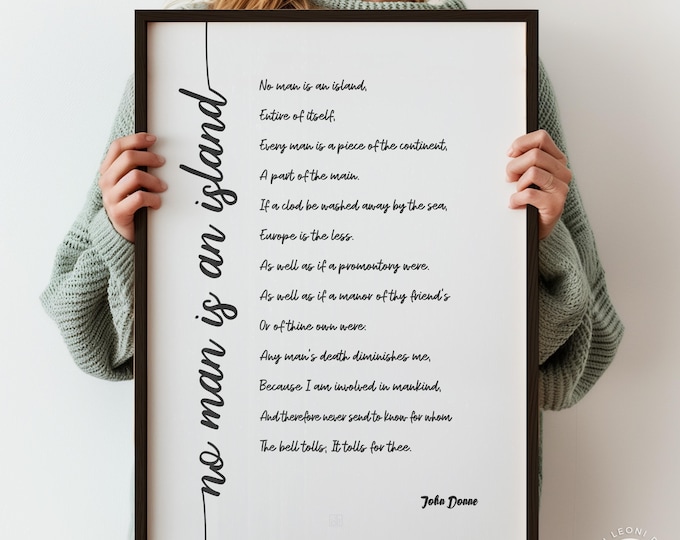 no man is an island
No man is an island,
Entire of itself,
Every man is a piece of the continent,
A part of the main.
If a clod be washed away by the sea,
Europe is the less.
As well as if a promontory were.
As well as if a manor of thy friend's
Or of thine own were:
Any man's death diminishes me,
Because I am involved in mankind,
And therefore never send to know for whom
The bell tolls; It tolls for thee.
John Donne
LEONI